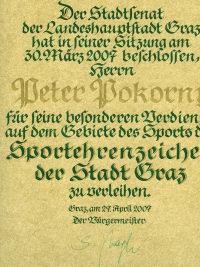 Der Stadtsenat
der Landeshauptstadt Graz
hat in seiner Sitzung am
30. März 2007 beschlossen,
Herrn
Peter Pokorn
für seine besonderen Verdien
auf dem Gebiete des Sports d
Sportehrenzeiche
der Stadt Graz
zu verleihen.
Graz, am 27. April 2007
Der Bürgermeister